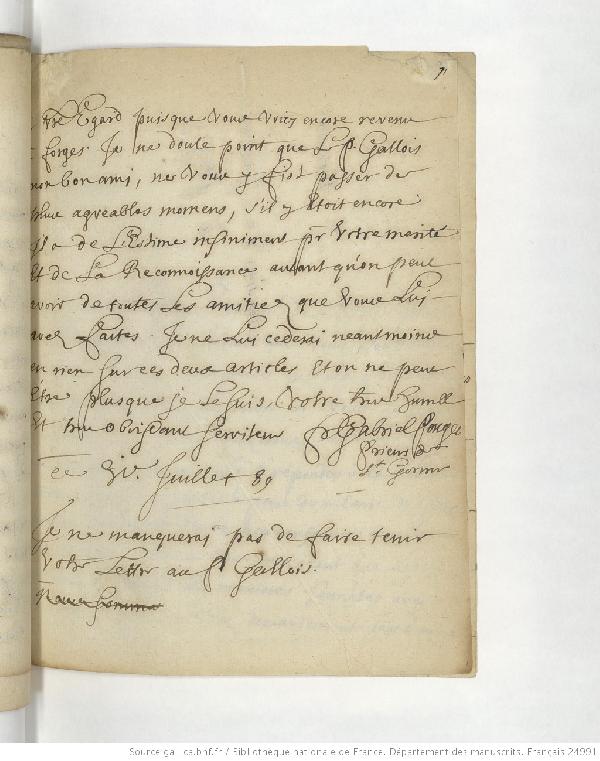 71
vtre Egard puisque Vous vriez encore revenu
forges. Je ne doute point que Le p. Gallois
mon bon ami, ne Vous y fist passer de
plus agreables momens, s'il y Etoit encore
il a de L'Estime infiniment pr Votre merite
Et de La Reconnoissance autant qu'on peut
avoir de toutes Les amitiez que Vous Lui
avez faites. Je ne Lui cederai neantmoins
en rien sur ces deux articles Et on ne peut
Etre plus que je Le suis Votre tres humble
Et tres obeissant serviteur fr Gabriel
Prieur de
St.
ce Juillet 89
Je ne manquerai pas de faire tenir
Votre Lettre au P. Gallois.
Source gallica.bnf.fr / Bibliothèque nationale de France. Département des manuscrits. Français 24991